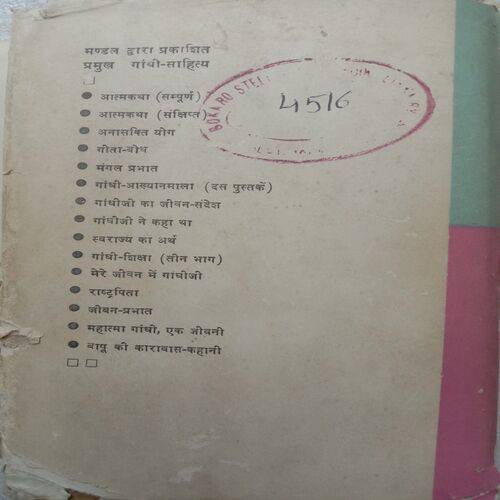 मण्डल द्वारा प्रकाशित
प्रमुख गांधी-साहित्य
आत्मकथा (सम्पूर्ण)
आत्मकथा (संक्षिप्त)
अनासक्ति योग
गीता-बोध
मंगल प्रभात
गांधी-आख्यानमाला (दस पुस्तकें)
गांधीजी का जीवन-संदेश
गांधीजी ने कहा था
स्वराज्य का अर्थ
गांधी-शिक्षा (तीन भाग)
मेरे जीवन में गांधीजी
राष्ट्रपिता
जीवन-प्रभात
महात्मा गांधी, एक जीवनी
बापू की कारावास-कहानी
BOKARO STEEL
4516